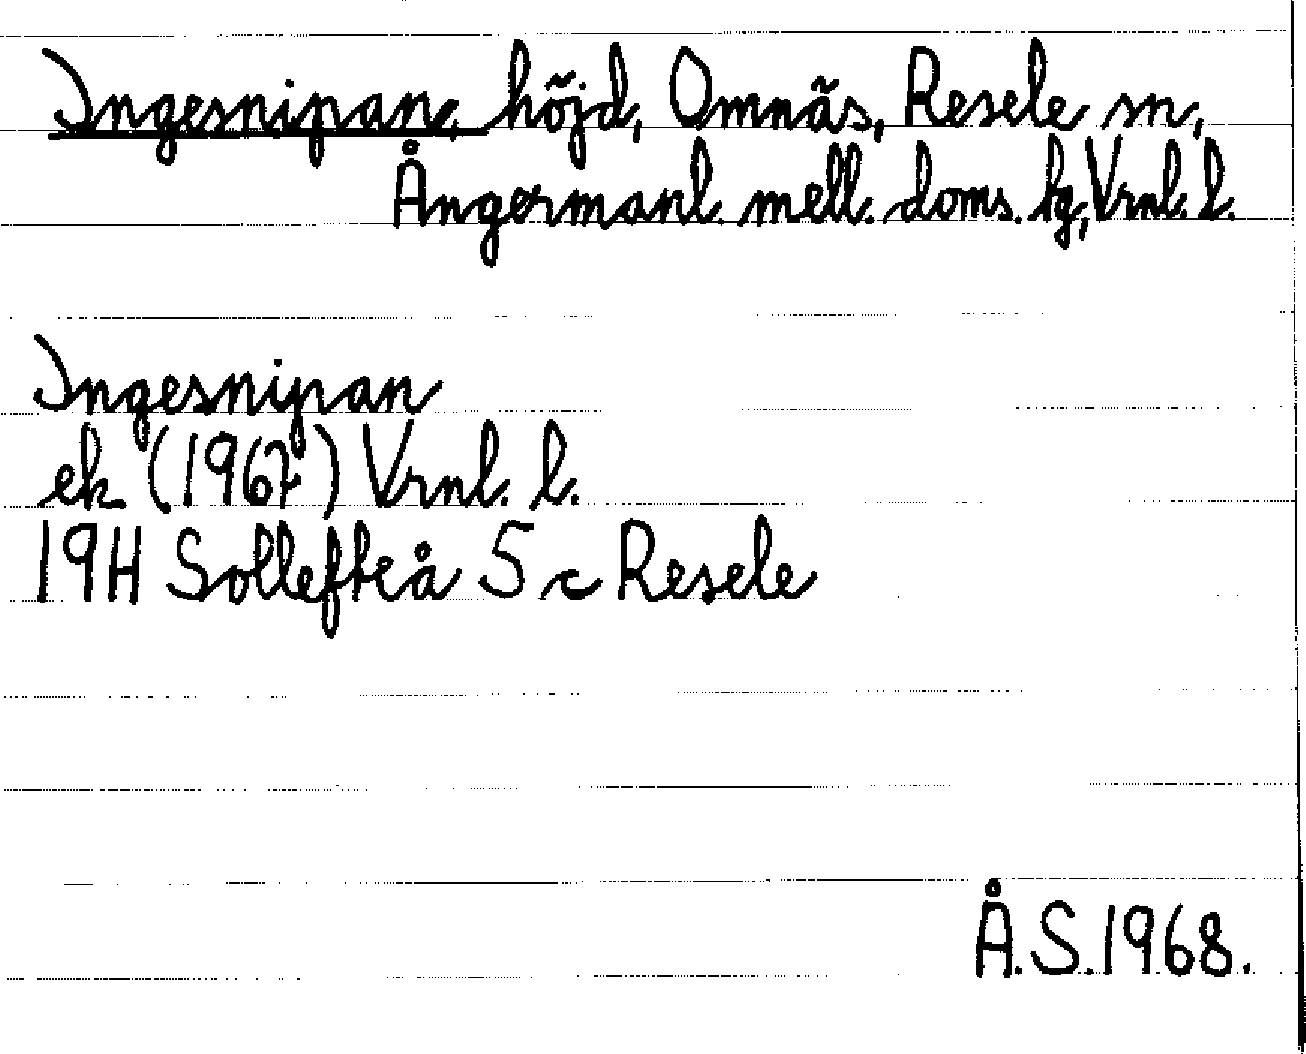 Ingesnipan, höjd, Omnäs, Resele sn,
Ångermanl. mell. doms. lg, Vrnl. l.
Ingesnipan
ek (1967) Vrnl. l.
19H Sollefteå 5 c Resele
Å.S.1968.